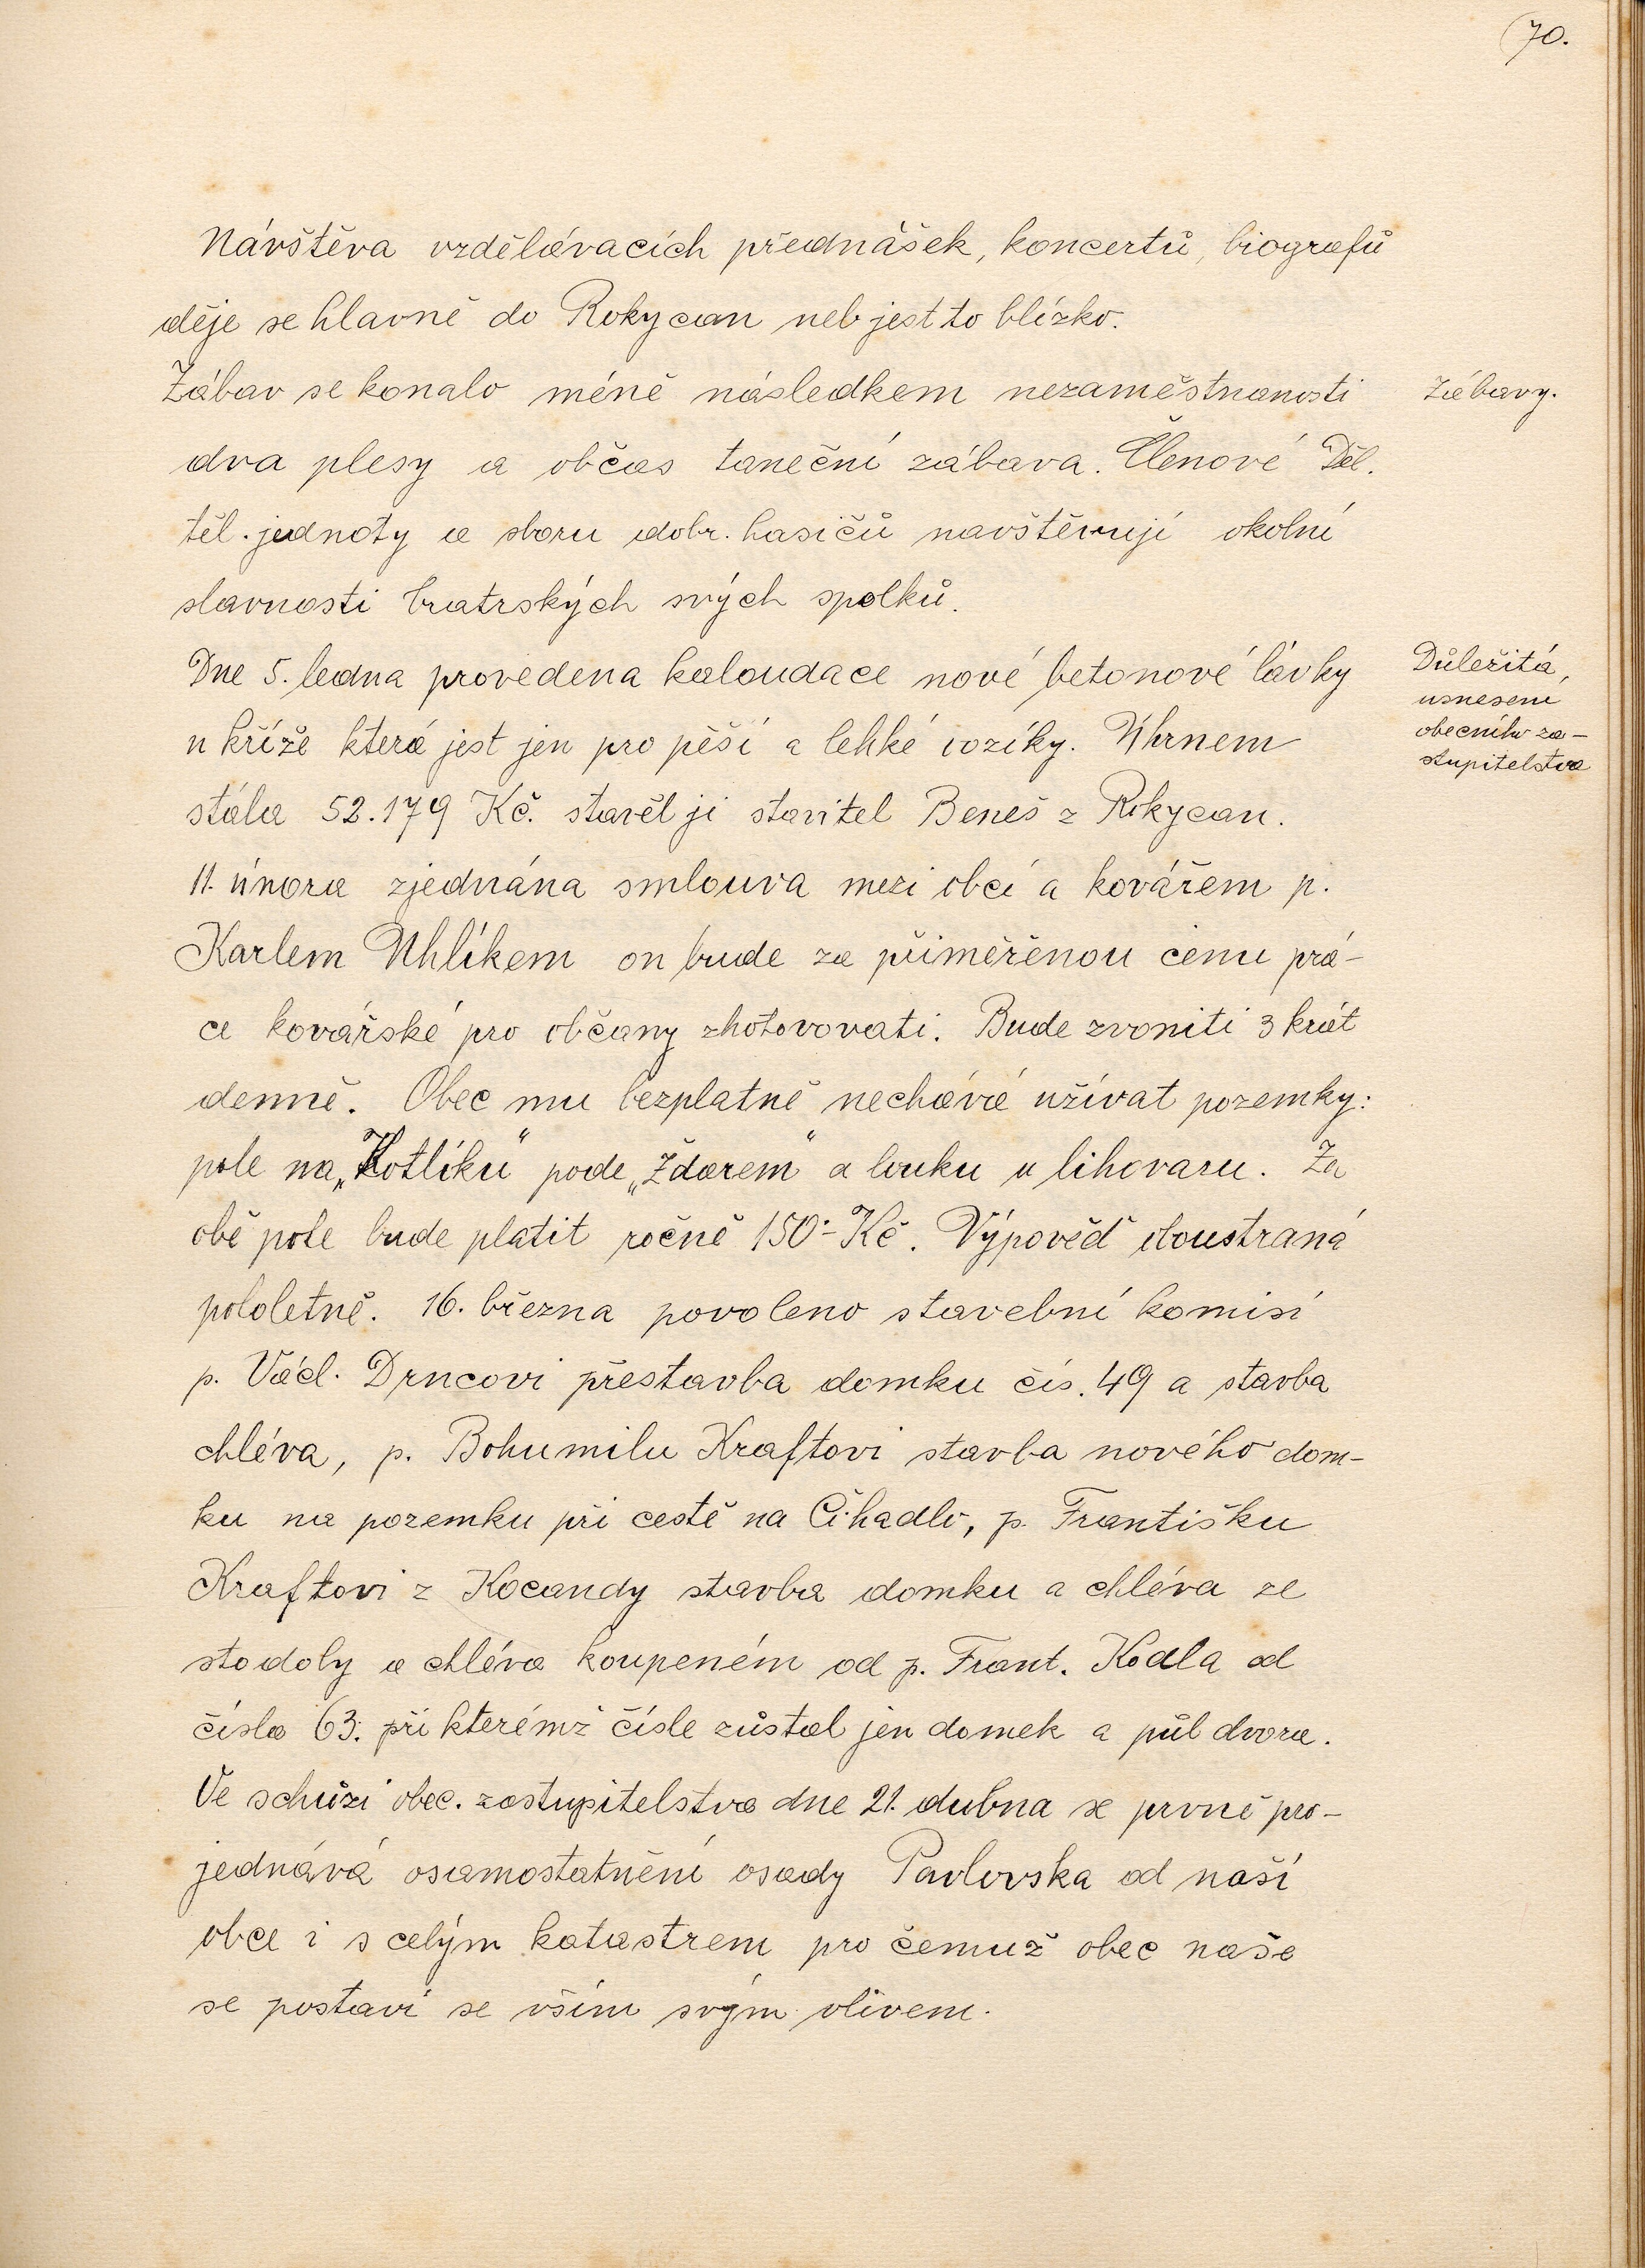 70.
Návštěva vzdělávacích přednášek, koncertů, biografů
děje se hlavně do Rokycan neb jest to blízko.
Zábav se konalo méně následkem nezaměstnanosti
Zábavy.
dva plesy a občas taneční zábava. Členové Děl.
těl. jednoty a sboru dobr. hasičů navštěvují okolní
slavnosti bratrských svých spolků.
Dne 5. ledna provedena kaloudace nové betonové lávky
Důležitá,
usnesení
obecního za-
stupitelstva
u kříže která jest jen pro pěší a lehké vozíky. Úhrnem
stála 52.179 Kč. stavěl ji stavitel Beneš z Rokycan.
11. února zjednána smlouva mezi obcí a kovářem p.
Karlem Uhlíkem on bude za přiměřenou cenu prá-
ce kovářské pro občany zhotovovati. Bude zvoniti 3 krát
denně. Obec mu bezplatně nechává užívat pozemky:
pole na „Kotlíku“ pode „Ždarem“ a louku u lihovaru. Za
obě pole bude platit ročně 150·- Kč. Výpověď oboustraná
pololetně. 16. března povoleno stavební komisí
p. Václ. Drncovi přestavba domku čís. 49 a stavba
chléva, p. Bohumilu Kraftovi stavba nového dom-
ku na pozemku při cestě na Čihadlo, p. Františku
Kraftovi z Kocandy stavba domku a chléva ze
stodoly a chléva koupeném od p. Frant. Kodla od
čísla 63. při kterémž čísle zůstal jen domek a půl dvora.
Ve schůzi obec. zastupitelstva dne 21. dubna se prvně pro-
jednává osamostatnění osady Pavlovska od naší
obce i s celým katastrem pro čemuž obec naše
se postaví se vším svým vlivem.